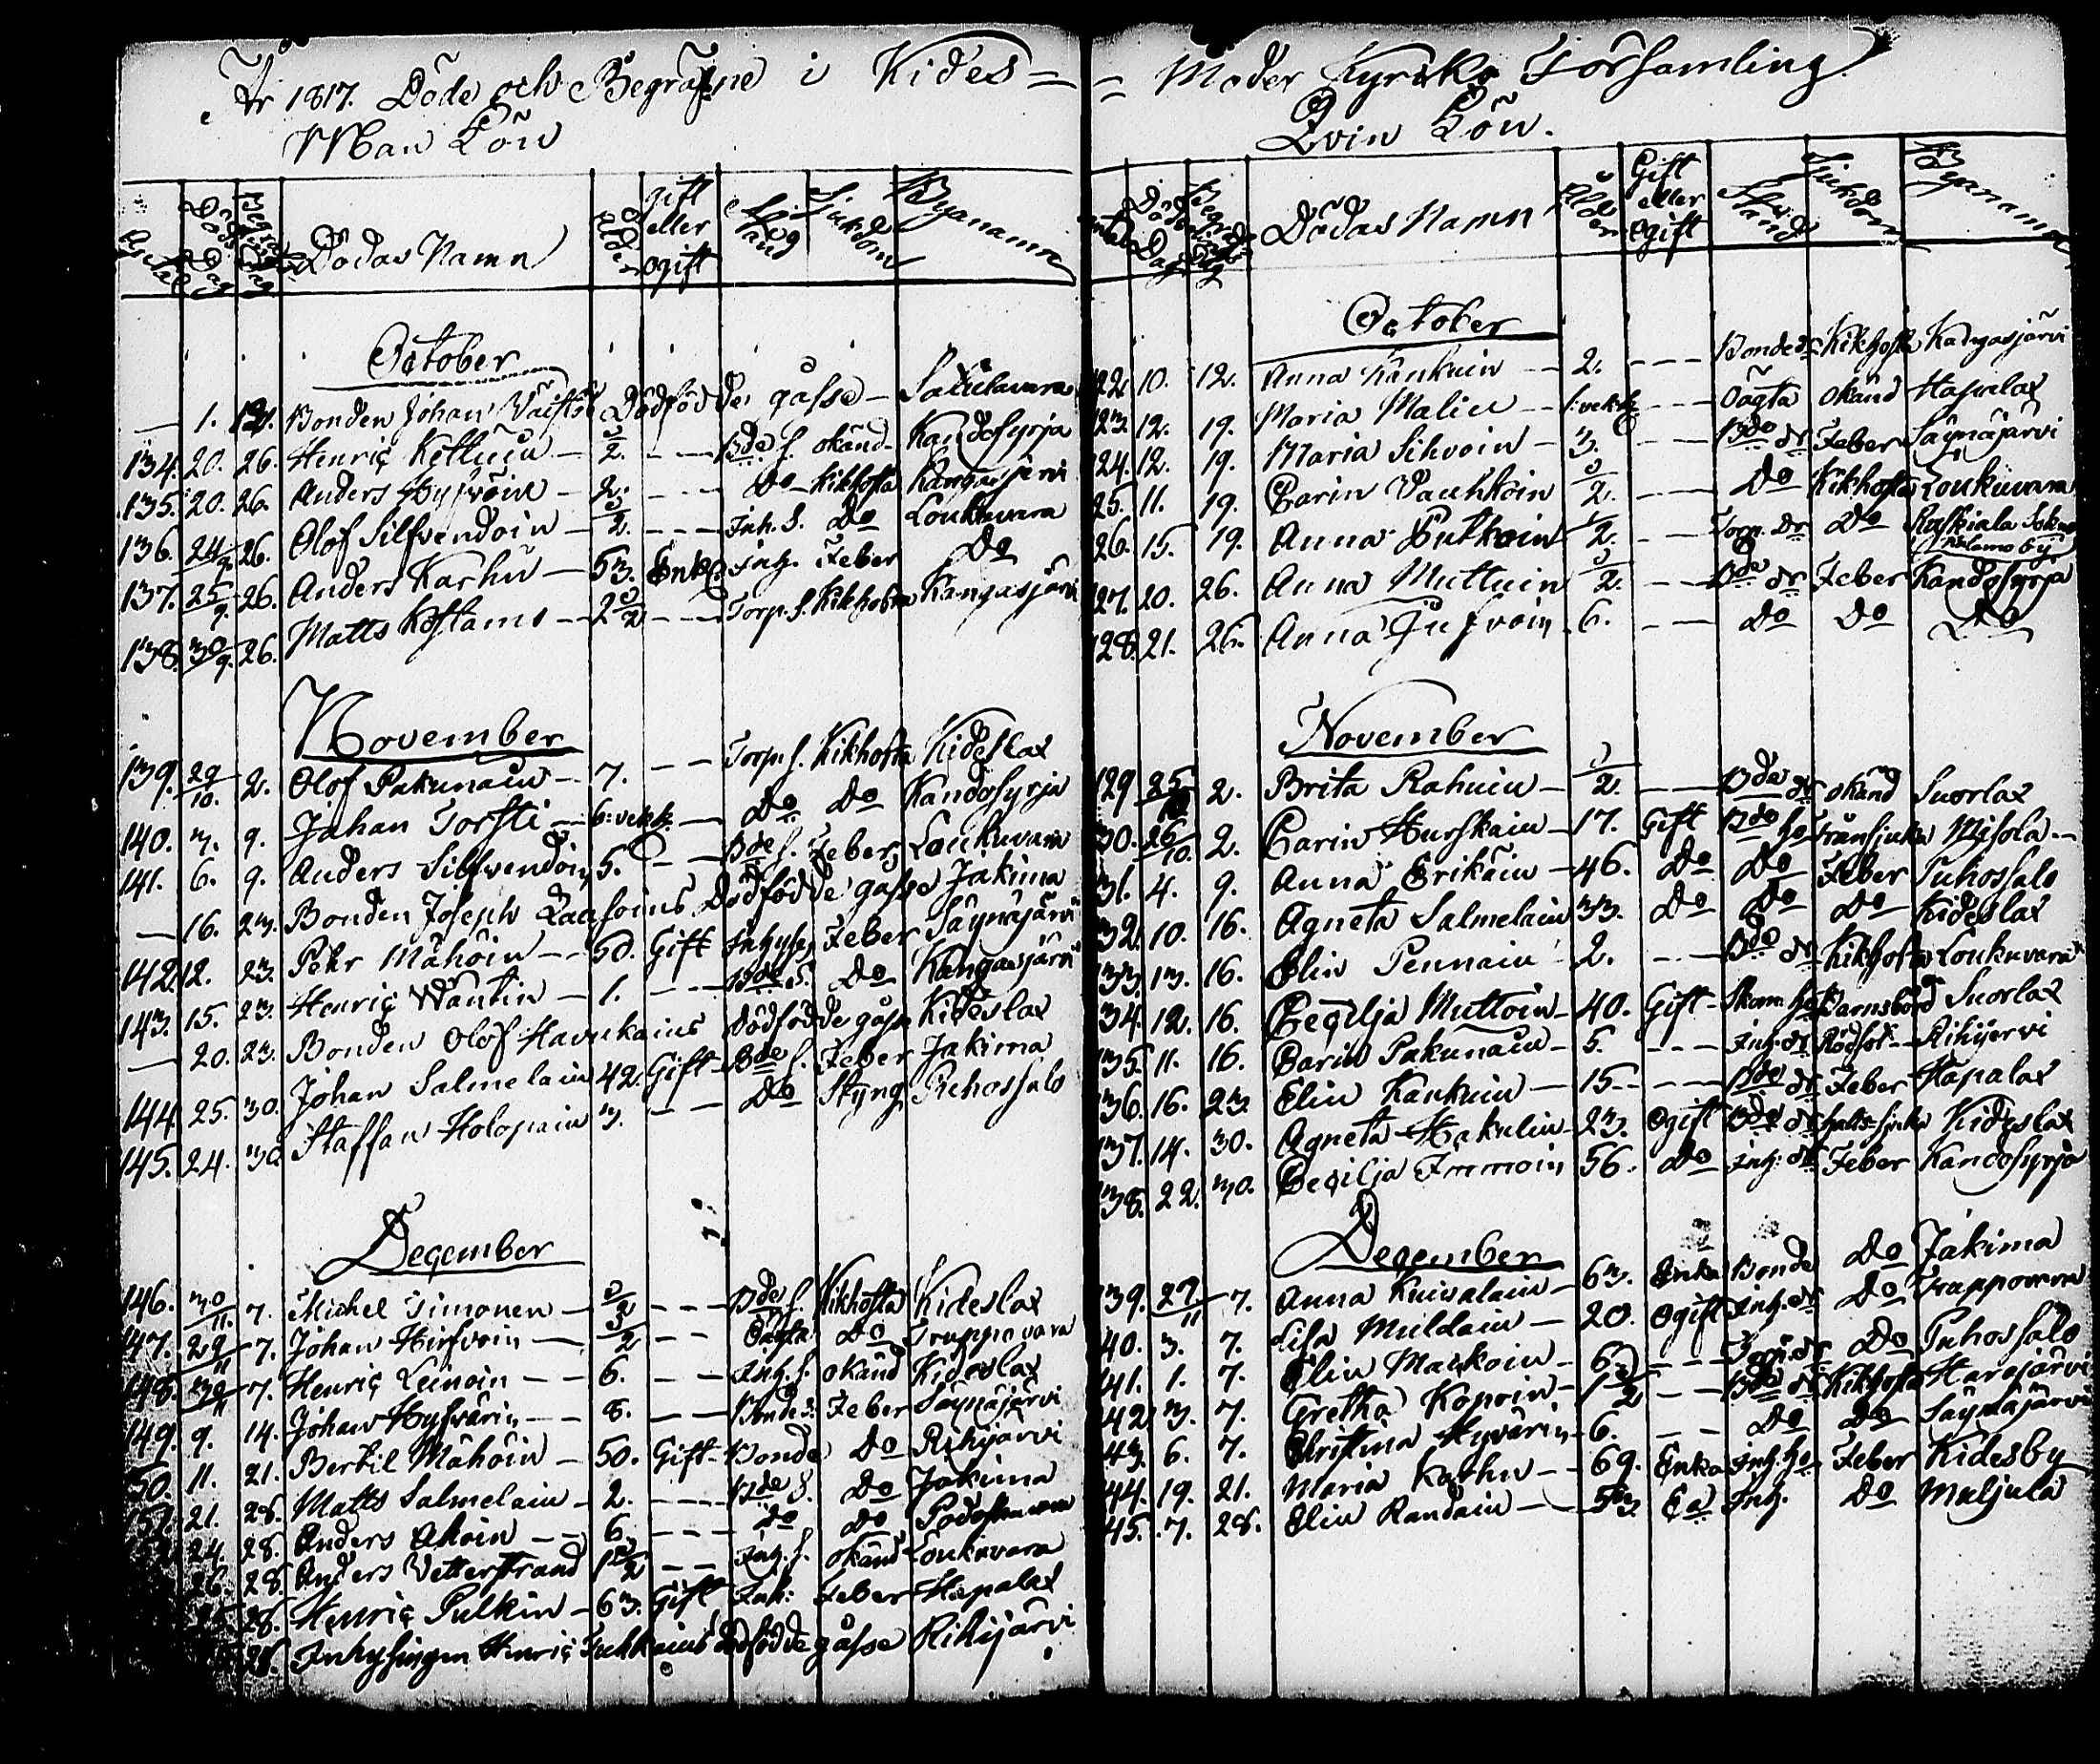 År 1817. Döde och Begrafne i Kides =
Man Kön
Antal Döds Dag Begrafnings Dag Dödas Namn Ålder gift eller ogift Stånd Sjukdom Bynamn
October
— 1. 12. Bonden Johan Död född e gåsse — Salukavara
134. 20. 26. Henric Kettuin — 1/2. — — Bde S. okänd Kandosyrja
135. 20. 26. Anders Hyfvöin — 2. — — — Do Kikhosta Kangasjervi
136. 24/9. 26. Olof Silfvendoin — 1/2. — — — Inh. S. Do Loukuvara
137. 25/9. 26. Anders Karhu — 53. Enkl. Inh. Feber Do
138. 30/9. 26. Matts Kostamo — 2 1/2 — — Torp. S. Kikhosta Kangasjärvi
November
139. 29/10. 2. Olof Pakunain — 7. — — Torp. S. Kikhosta Kideslax
140. 3. 9. Johan Torsti — 6: vek: — Do Do Kandosyrja
141. 6. 9. Anders Silfvendoin 5. — — Bde S. Feber Loukuvara
— 16. 23. Bonden Joseph Laasoins Dödfödde gåsse Jakima
142. 12. 23. Pehr Mähöin — — 50. Gift Inhyses Feber Säynäjärvi
143. 15. 23. Henric Wäntin — 1. — — Bde S. Do Kangasjärvi
— 20. 23. Bonden Olof Havukains Dödfödde gåsse Kideslax
144. 25. 30. Johan Salmelain 42. Gift Bde S. Feber Jakima
145. 24. 30. Staffan Holopain 3. — — Do Styng Puhossalo
December
146. 30/11. 7. Michel Simonen — 1/2 — — — Bde S. Kikhosta Kideslax
147. 29/11 7. Johan Hirfvoin — 1/2 — — Oägta Do Truppovara
148. 30/11 7. Henric Leinoin — — 6. — — Inh. S. okänd Kideslax
149. 9. 14. Johan Hyfvärin — — 8. — — Bonde S. Feber Säynäjärvi
50. 11. 21. Bertil Mähöin — 50. Gift — Bonde Do Rihijärvi
21. 28. Matts Salmelain — 2. — — — Bde S. Do Jakima
24. 28. Anders Ahoin — — 6. — — — Do Do
26. 28. Anders Vetterstrand 1 1/2 — — Inh. S. okänd Loukuvara
28. Henric Pulkin — 63. Gift Inh: Feber Hapalax
28. Inhysingen Henric Tukkains dödfödde gåsse Rihijärvi

= Moder Kyrko Församling.
Qvin Kön.
Antal Döds Dag Begrafnings Dag Dödas Namn Ålder Gift eller ogift Stånd Sjukdom Bynamn
October
122. 10. 12. Anna Kankuin — — 2. — — — Bonde dr Kikhosta Kangasjärvi
123. 12. 19. Maria Malin — 1: vek: — — Oägta okänd Hapalax
124. 12. 19. Maria Silvoin — 3. — — Bde dr Feber Säynäjärvi
25. 11. 19. Carin Vauhkoin 1/2. — — Do Kikhosta Loukuvara
26. 15. 19. Anna Putkoin 1/2. — — Torp. dr Do Ruskiala Sokn by
127. 20. 26. Anna Muttuin 1/2. — — Bde dr Feber Kandosyrja
128. 21. 26. Anna 6. — — Do Do Do
November
129 25/10 2. Brita Rahuin — 1/2. — — Bde dr okänd Suorlax
30. 26/10. 2. Carin Hurskain — 17. Gift Bde Hu Misola —
31. 4. 9. Anna Erikäin — 46. Do Do Feber Puhossalo
32. 10. 16. Agneta Salmelain 33. Do Do Do Kideslax
33. 13. 16. Elin Pennain 2. — — Bde dr Kikhosta Loukuvara
34. 12. 16. Cecilja Muttoin — 40. Gift — Barnsbörd Suorlax
35. 11. 16. Carin Pakunain — 5. — — — Inh. dr Rödsot — Rihijervi
36. 16. 23. Elin Kankuin — 15 — — — — Bde dr Feber Hapalax
37. 14. 30. Agneta Hakulin — 23. Ogift Bde dr Hals-sjuka Kideslax
38. 22. 30. Cecilja Immoin 56. Do Inh: dr Feber Kandosyrja
December
39. 29/11 7. Anna Kuivalain — 63. Enka Bonde Do Jakima
40. 3. 7. Lisa Muldain — 20. Ogift Inh. dr Do Trappovara
41. 1. 7. Elin Matkoin — 6. — — — dr Do Puhossalo
42 3. 7. Gretha Kopoin — 1 1/2 — — Bde dr Kikhosta Harajärvi
43. 6. 7. Christina Hyvärin — 6. — — Do Do Säynäjärvi
44. 19. 21. Maria Karhu — — 69. Enka Inh. Hu Feber Kidesby
45. 7. 28. Elin Randain — — 53. Ea Inh. Do Muljula